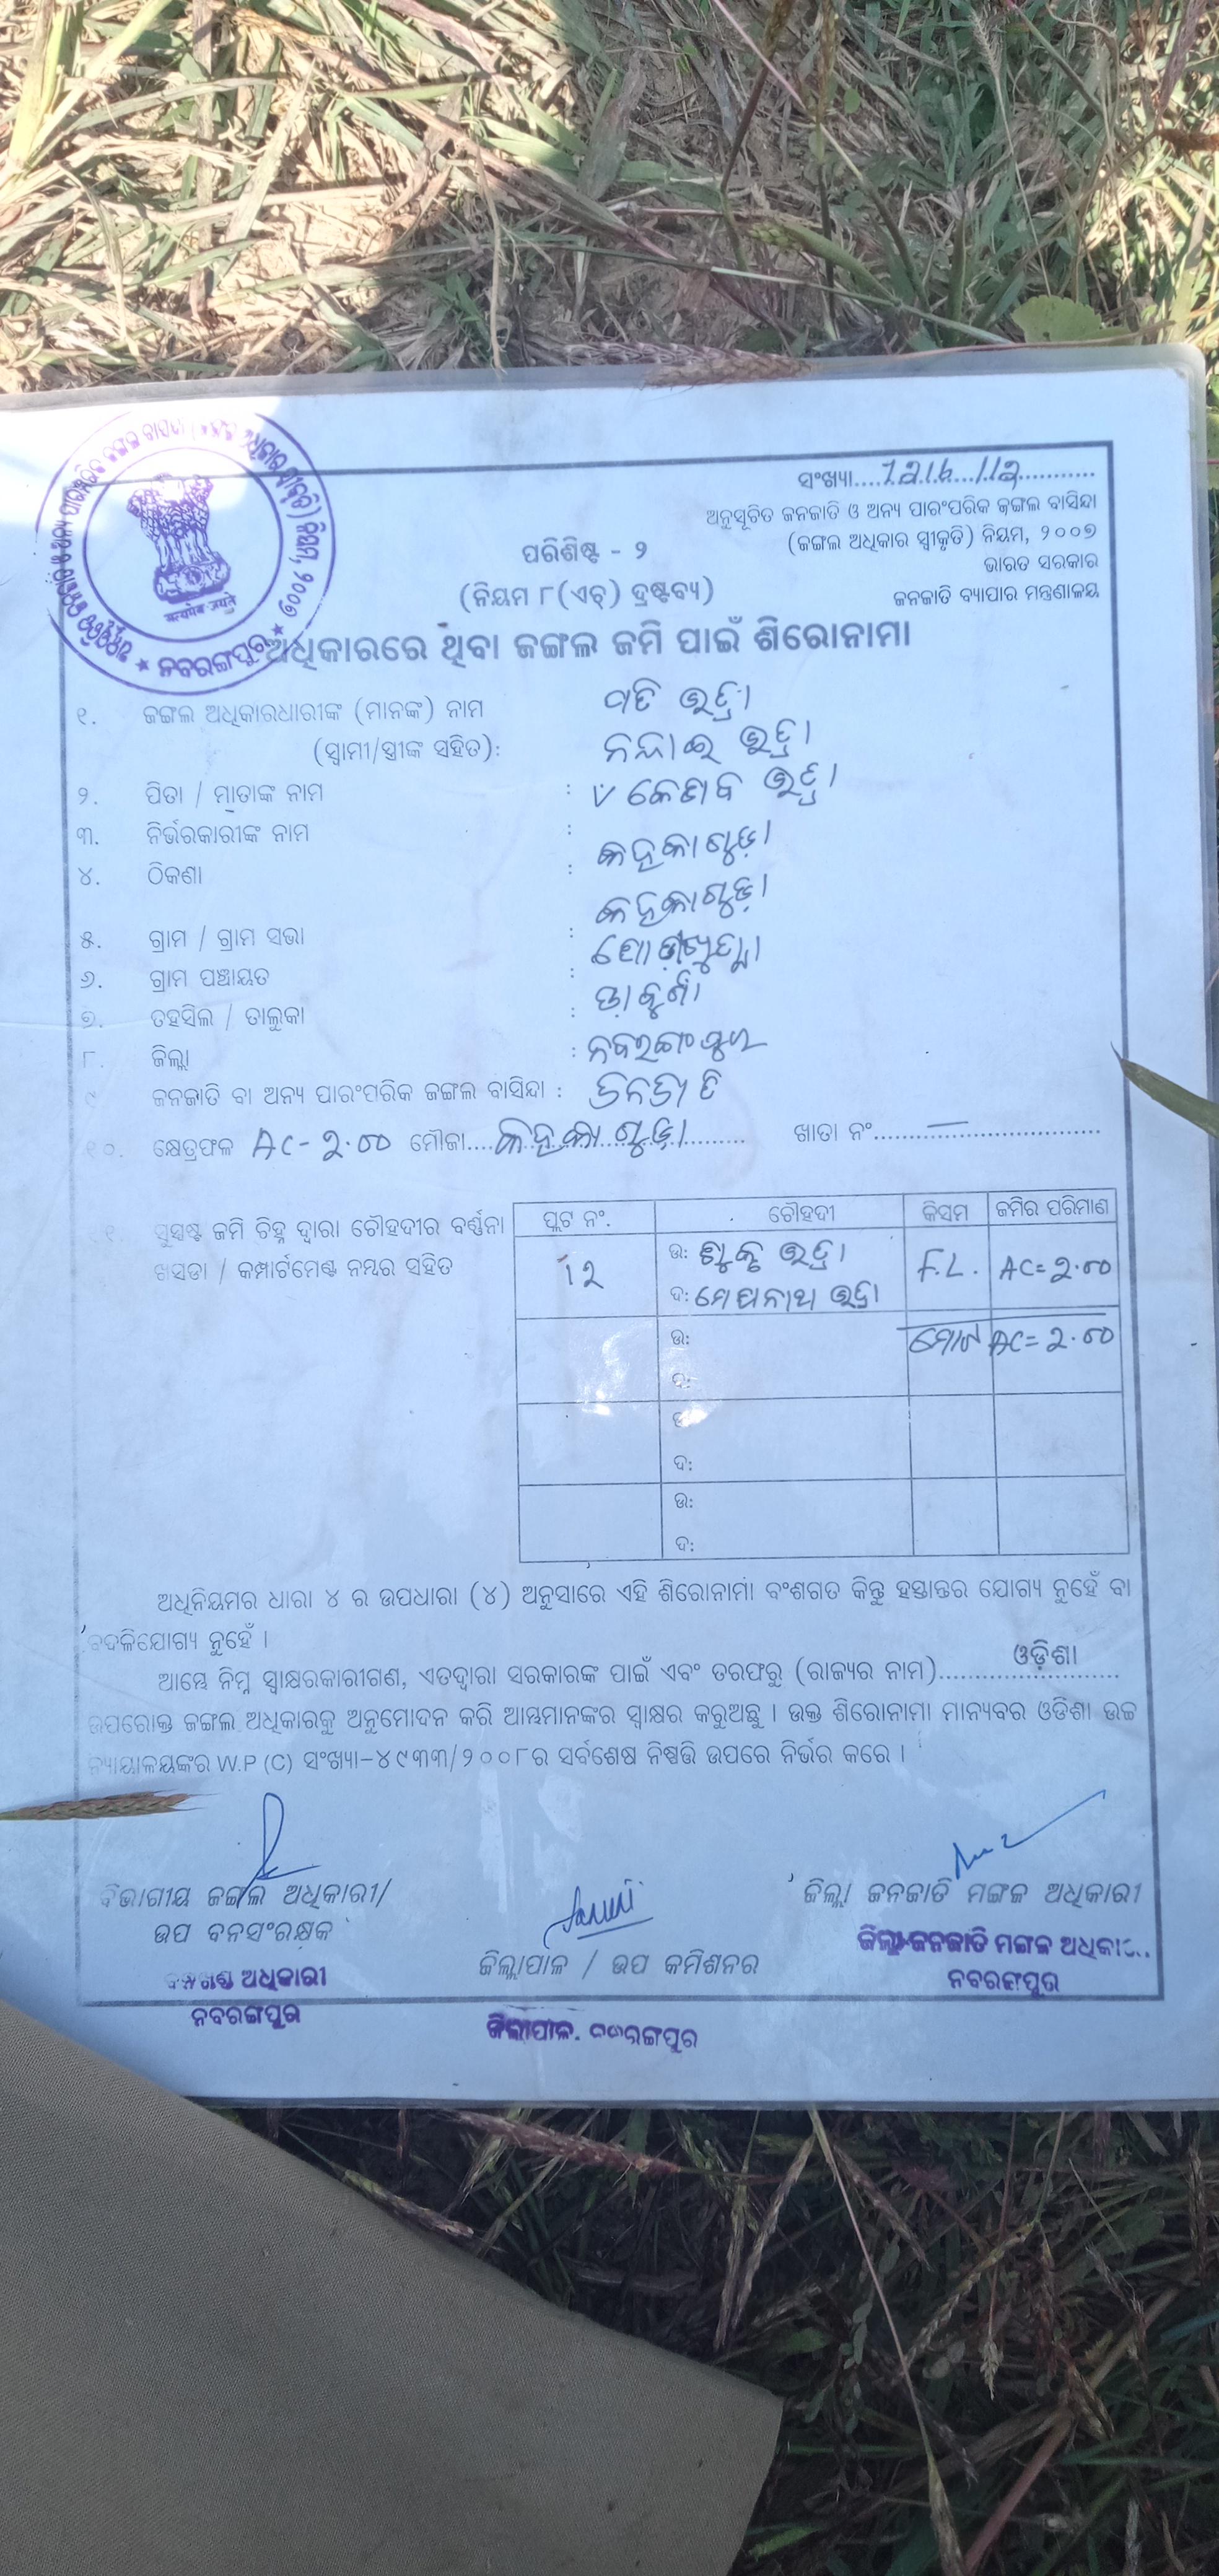 ସଂଖ୍ୟା....1216/12
ଅନୁସୂଚିତ ଜନଜାତି ଓ ଅନ୍ୟ ପାରଂପରିକ ଜଙ୍ଗଲ ବାସିନ୍ଦା
(ଜଙ୍ଗଲ ଅଧିକାର ସ୍ୱୀକୃତି) ନିୟମ, ୨୦୦୭
ଭାରତ ସରକାର
ଜନଜାତି ବ୍ୟାପାର ମନ୍ତ୍ରଣାଳୟ
ପରିଶିଷ୍ଟ - ୨
(ନିୟମ ୮(ଏଚ୍) ଦ୍ରଷ୍ଟବ୍ୟ)
ନବରଙ୍ଗପୁର
ଅଧିକାରରେ ଥିବା ଜଙ୍ଗଲ ଜମି ପାଇଁ ଶିରୋନାମା
୧. ଜଙ୍ଗଲ ଅଧିକାରଧାରୀଙ୍କ (ମାନଙ୍କ) ନାମ ପତି ଭତ୍ରା
(ସ୍ୱାମୀ/ସ୍ତ୍ରୀଙ୍କ ସହିତ): ଭତ୍ରା
୨. ପିତା / ମାତାଙ୍କ ନାମ : କେଶବ ଭତ୍ରା
୩. ନିର୍ଭରକାରୀଙ୍କ ନାମ :
୪. ଠିକଣା : କହ୍ନକାଗୁଡ଼ା
୫. ଗ୍ରାମ / ଗ୍ରାମ ସଭା : କହ୍ନକାଗୁଡ଼ା
୬. ଗ୍ରାମ ପଞ୍ଚାୟତ :
୭. ତହସିଲ / ତାଲୁକା :
୮. ଜିଲ୍ଲା : ନବରଙ୍ଗପୁର
୯ ଜନଜାତି ବା ଅନ୍ୟ ପାରଂପରିକ ଜଙ୍ଗଲ ବାସିନ୍ଦା : ଜନଜାତି
୧୦. କ୍ଷେତ୍ରଫଳ AC - ୨.୦୦ ମୌଜା.... କହ୍ନକାଗୁଡ଼ା ଖାତା ନଂ.... —
ସୁସ୍ପଷ୍ଟ ଜମି ଚିହ୍ନ ଦ୍ୱାରା ଚୌହଦୀର ବର୍ଣ୍ଣନା
ଖସଡା / କମ୍ପାର୍ଟମେଣ୍ଟ ନମ୍ବର ସହିତ
ପ୍ଲଟ ନଂ. ଚୌହଦୀ କିସମ ଜମିର ପରିମାଣ
12 ଉ: ଭତ୍ରା F.L. AC = ୨.୦୦
ଦ: ମେଘନାଥ ଭତ୍ରା
ଉ: ମୋଟ AC = ୨.୦୦
ଦ:
ଉ:
ଦ:
ଉ:
ଦ:
ଅଧିନିୟମର ଧାରା ୪ ର ଉପଧାରା (୪) ଅନୁସାରେ ଏହି ଶିରୋନାମା ବଂଶଗତ କିନ୍ତୁ ହସ୍ତାନ୍ତର ଯୋଗ୍ୟ ନୁହେଁ ବା
ବଦଳିଯୋଗ୍ୟ ନୁହେଁ ।
ଆମ୍ଭେ ନିମ୍ନ ସ୍ୱାକ୍ଷରକାରୀଗଣ, ଏତଦ୍ୱାରା ସରକାରଙ୍କ ପାଇଁ ଏବଂ ତରଫରୁ (ରାଜ୍ୟର ନାମ).... ଓଡ଼ିଶା
ଉପରୋକ୍ତ ଜଙ୍ଗଲ ଅଧିକାରକୁ ଅନୁମୋଦନ କରି ଆମ୍ଭମାନଙ୍କର ସ୍ୱାକ୍ଷର କରୁଅଛୁ । ଉକ୍ତ ଶିରୋନାମା ମାନ୍ୟବର ଓଡିଶା ଉଚ୍ଚ
ନ୍ୟାୟାଳୟଙ୍କର W.P (C) ସଂଖ୍ୟା-୪୯୩୩/୨୦୦୮ର ସର୍ବଶେଷ ନିଷ୍ପତ୍ତି ଉପରେ ନିର୍ଭର କରେ ।
ବିଭାଗୀୟ ଜଙ୍ଗଲ ଅଧିକାରୀ/
ଉପ ବନସଂରକ୍ଷକ
ବନଖଣ୍ଡ ଅଧିକାରୀ
ନବରଙ୍ଗପୁର
ଜିଲ୍ଲାପାଳ / ଉପ କମିଶନର
ଜିଲ୍ଲାପାଳ. ନବରଙ୍ଗପୁର
ଜିଲ୍ଲା ଜନଜାତି ମଙ୍ଗଳ ଅଧିକାରୀ
ଜିଲ୍ଲା ଜନଜାତି ମଙ୍ଗଳ ଅଧିକାରୀ
ନବରଙ୍ଗପୁର